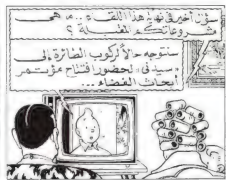 سؤال أخير في نهاية هذا اللقاء .. ما هي
مشروعاتكم المقبلة ؟
سنتوجه حالاً لركوب الطائرة إلى
"سيدني" لحضور افتتاح مؤتمر
أبحاث الفضاء ...